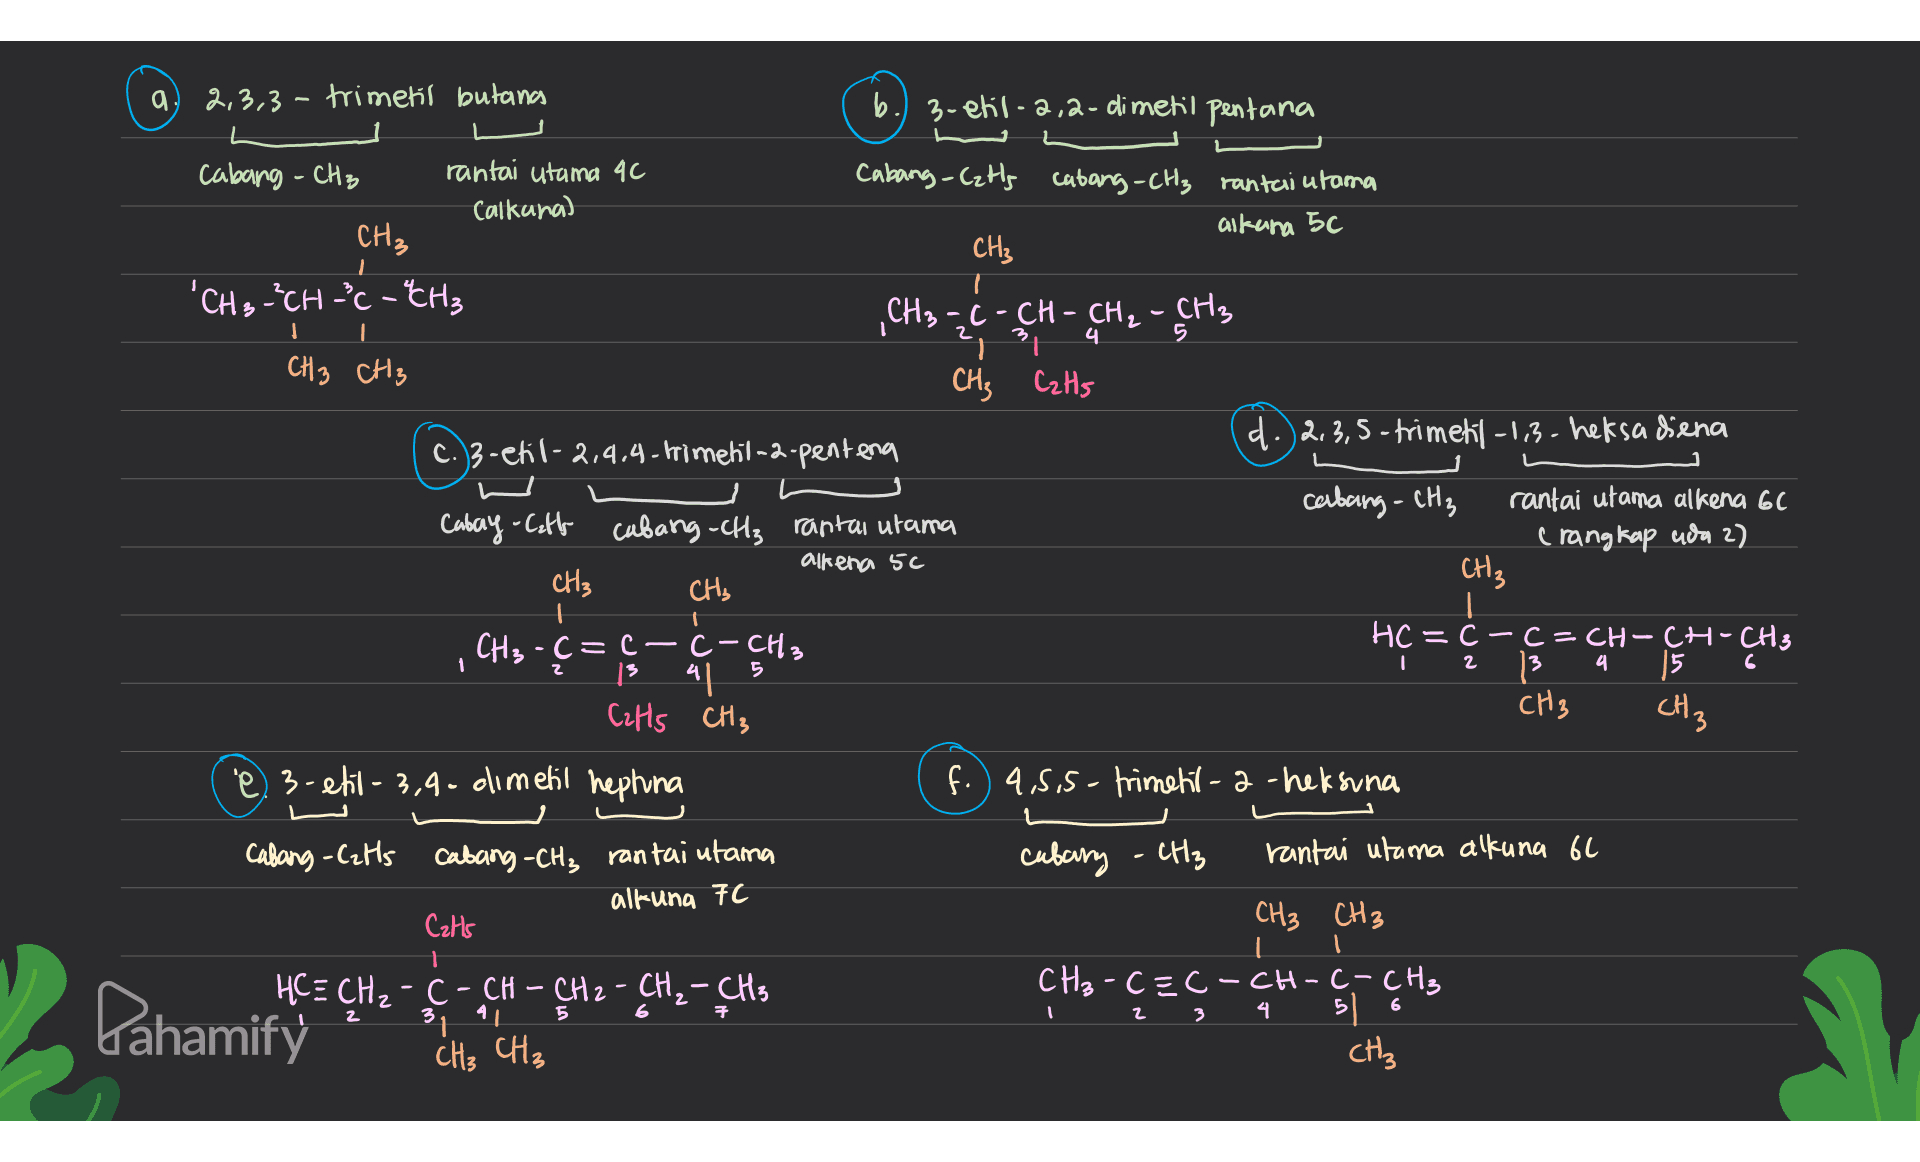 a. 2,3,3 - trimetil butana
Cabang - CH3 rantai utama 4C
(alkana)
CH3
1CH3 - 2CH - 3C - 4CH3
CH3 CH3
b. 3-etil - 2,2-dimetil pentana
Cabang - C2H5 cabang - CH3 rantai utama
alkana 5C
CH3
1CH3 - C - CH - CH2 - CH3
2 3 4 5
CH3 C2H5
c. 3-etil - 2,4,4-trimetil-2-pentena
Cabag - C2H5 cabang - CH3 rantai utama
alkena 5C
CH3 CH3
CH3 - C = C — C — CH3
1 2 3 4 5
C2H5 CH3
d. 2,3,5 - trimetil - 1,3 - heksadiena
cabang - CH3 rantai utama alkena 6C
(rangkap ada 2)
CH3
HC = C — C = CH — CH - CH3
1 2 3 4 5 6
CH3 CH3
e. 3-etil - 3,4- dimetil heptuna
Cabang - C2H5 cabang - CH3 rantai utama
alkuna 7C
C2H5
HC ≡ CH2 - C - CH - CH2 - CH2 - CH3
1 2 3 4 5 6 7
CH3 CH3
f. 4,5,5 - trimetil - 2 - heksuna
cabang - CH3 rantai utama alkuna 6C
CH3 CH3
CH3 - C ≡ C - CH - C - CH3
1 2 3 4 5 6
CH3
Pahamify